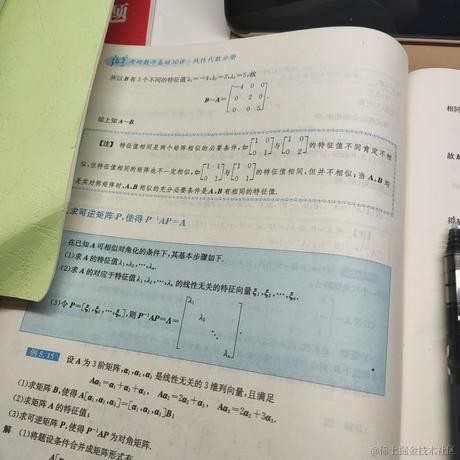 题
考研数学基础30讲·线性代数分册
所以B有3个不同的特征值λ₁=-4,λ₂=2,λ₃=5,故
B~Λ=[-4 0 0
0 2 0
0 0 5].
综上知A~B.
【注】 特征值相同是两个矩阵相似的必要条件,如[1 0
0 1]与[1 0
0 2]的特征值不同肯定不相
似,但特征值相同的矩阵也不一定相似,如[1 1
0 1]与[1 0
0 1]的特征值相同,但并不相似;当A,B均
是实对称矩阵时,A,B相似的充分必要条件是A,B有相同的特征值.
求可逆矩阵P,使得P⁻¹AP=Λ
在已知A可相似对角化的条件下,其基本步骤如下.
(1)求A的特征值λ₁,λ₂,…,λₙ.
(2)求A的对应于特征值λ₁,λ₂,…,λₙ的线性无关的特征向量ξ₁,ξ₂,…,ξₙ.
(3)令P=[ξ₁,ξ₂,…,ξₙ],则P⁻¹AP=Λ=[λ₁
λ₂
⋱
λₙ].
例5.15 设A为3阶矩阵,α₁,α₂,α₃是线性无关的3维列向量,且满足
Aα₁=α₁+α₂+α₃, Aα₂=2α₂+α₃, Aα₃=2α₂+3α₃.
(1)求矩阵B,使得A[α₁,α₂,α₃]=[α₁,α₂,α₃]B;
(2)求矩阵A的特征值;
(3)求可逆矩阵P,使得P⁻¹AP为对角矩阵.
解 (1)将题设条件合并成矩阵形式,有
相同
故B
@稀土掘金技术社区